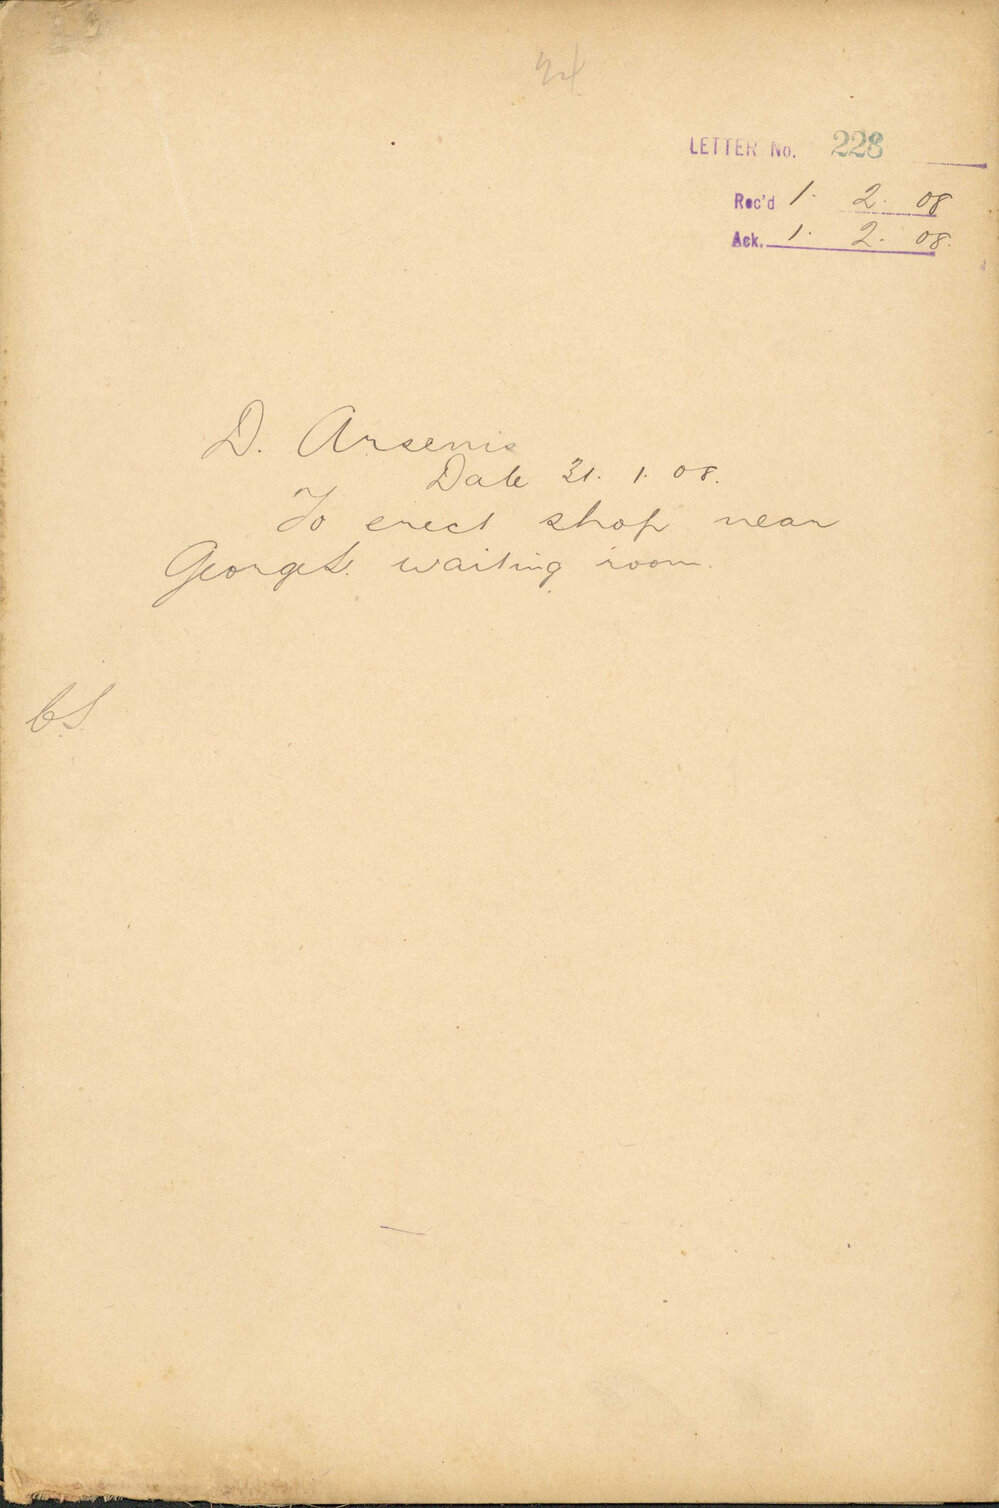 LETTER No. 228
Rec'd 1. 2. 08
Ack. 1. 2. 08.
D. Arsenis
Date 31. 1. 08.
To erect shop near
George St. waiting room.